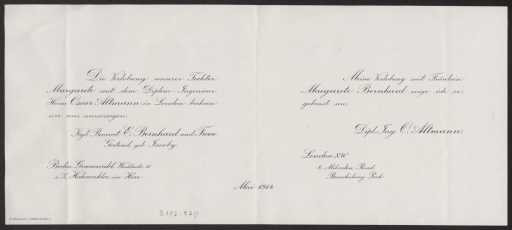 Die Verlobung unserer Tochter
Margarete mit dem Diplom-Ingenieur
Herrn Oscar Altmann in London beehren
wir uns anzuzeigen.
Kgl. Baurat E. Bernhard und Frau
Gertrud geb. Jacoby.
Berlin-Grunewald,
z. Z. Hahnenklee im Harz.
Meine Verlobung mit Fräulein
Margarete Bernhard zeige ich er-
gebenst an.
Dipl. Ing. O. Altmann
London N.W.
Road
Brondesbury Park
Mai 1914